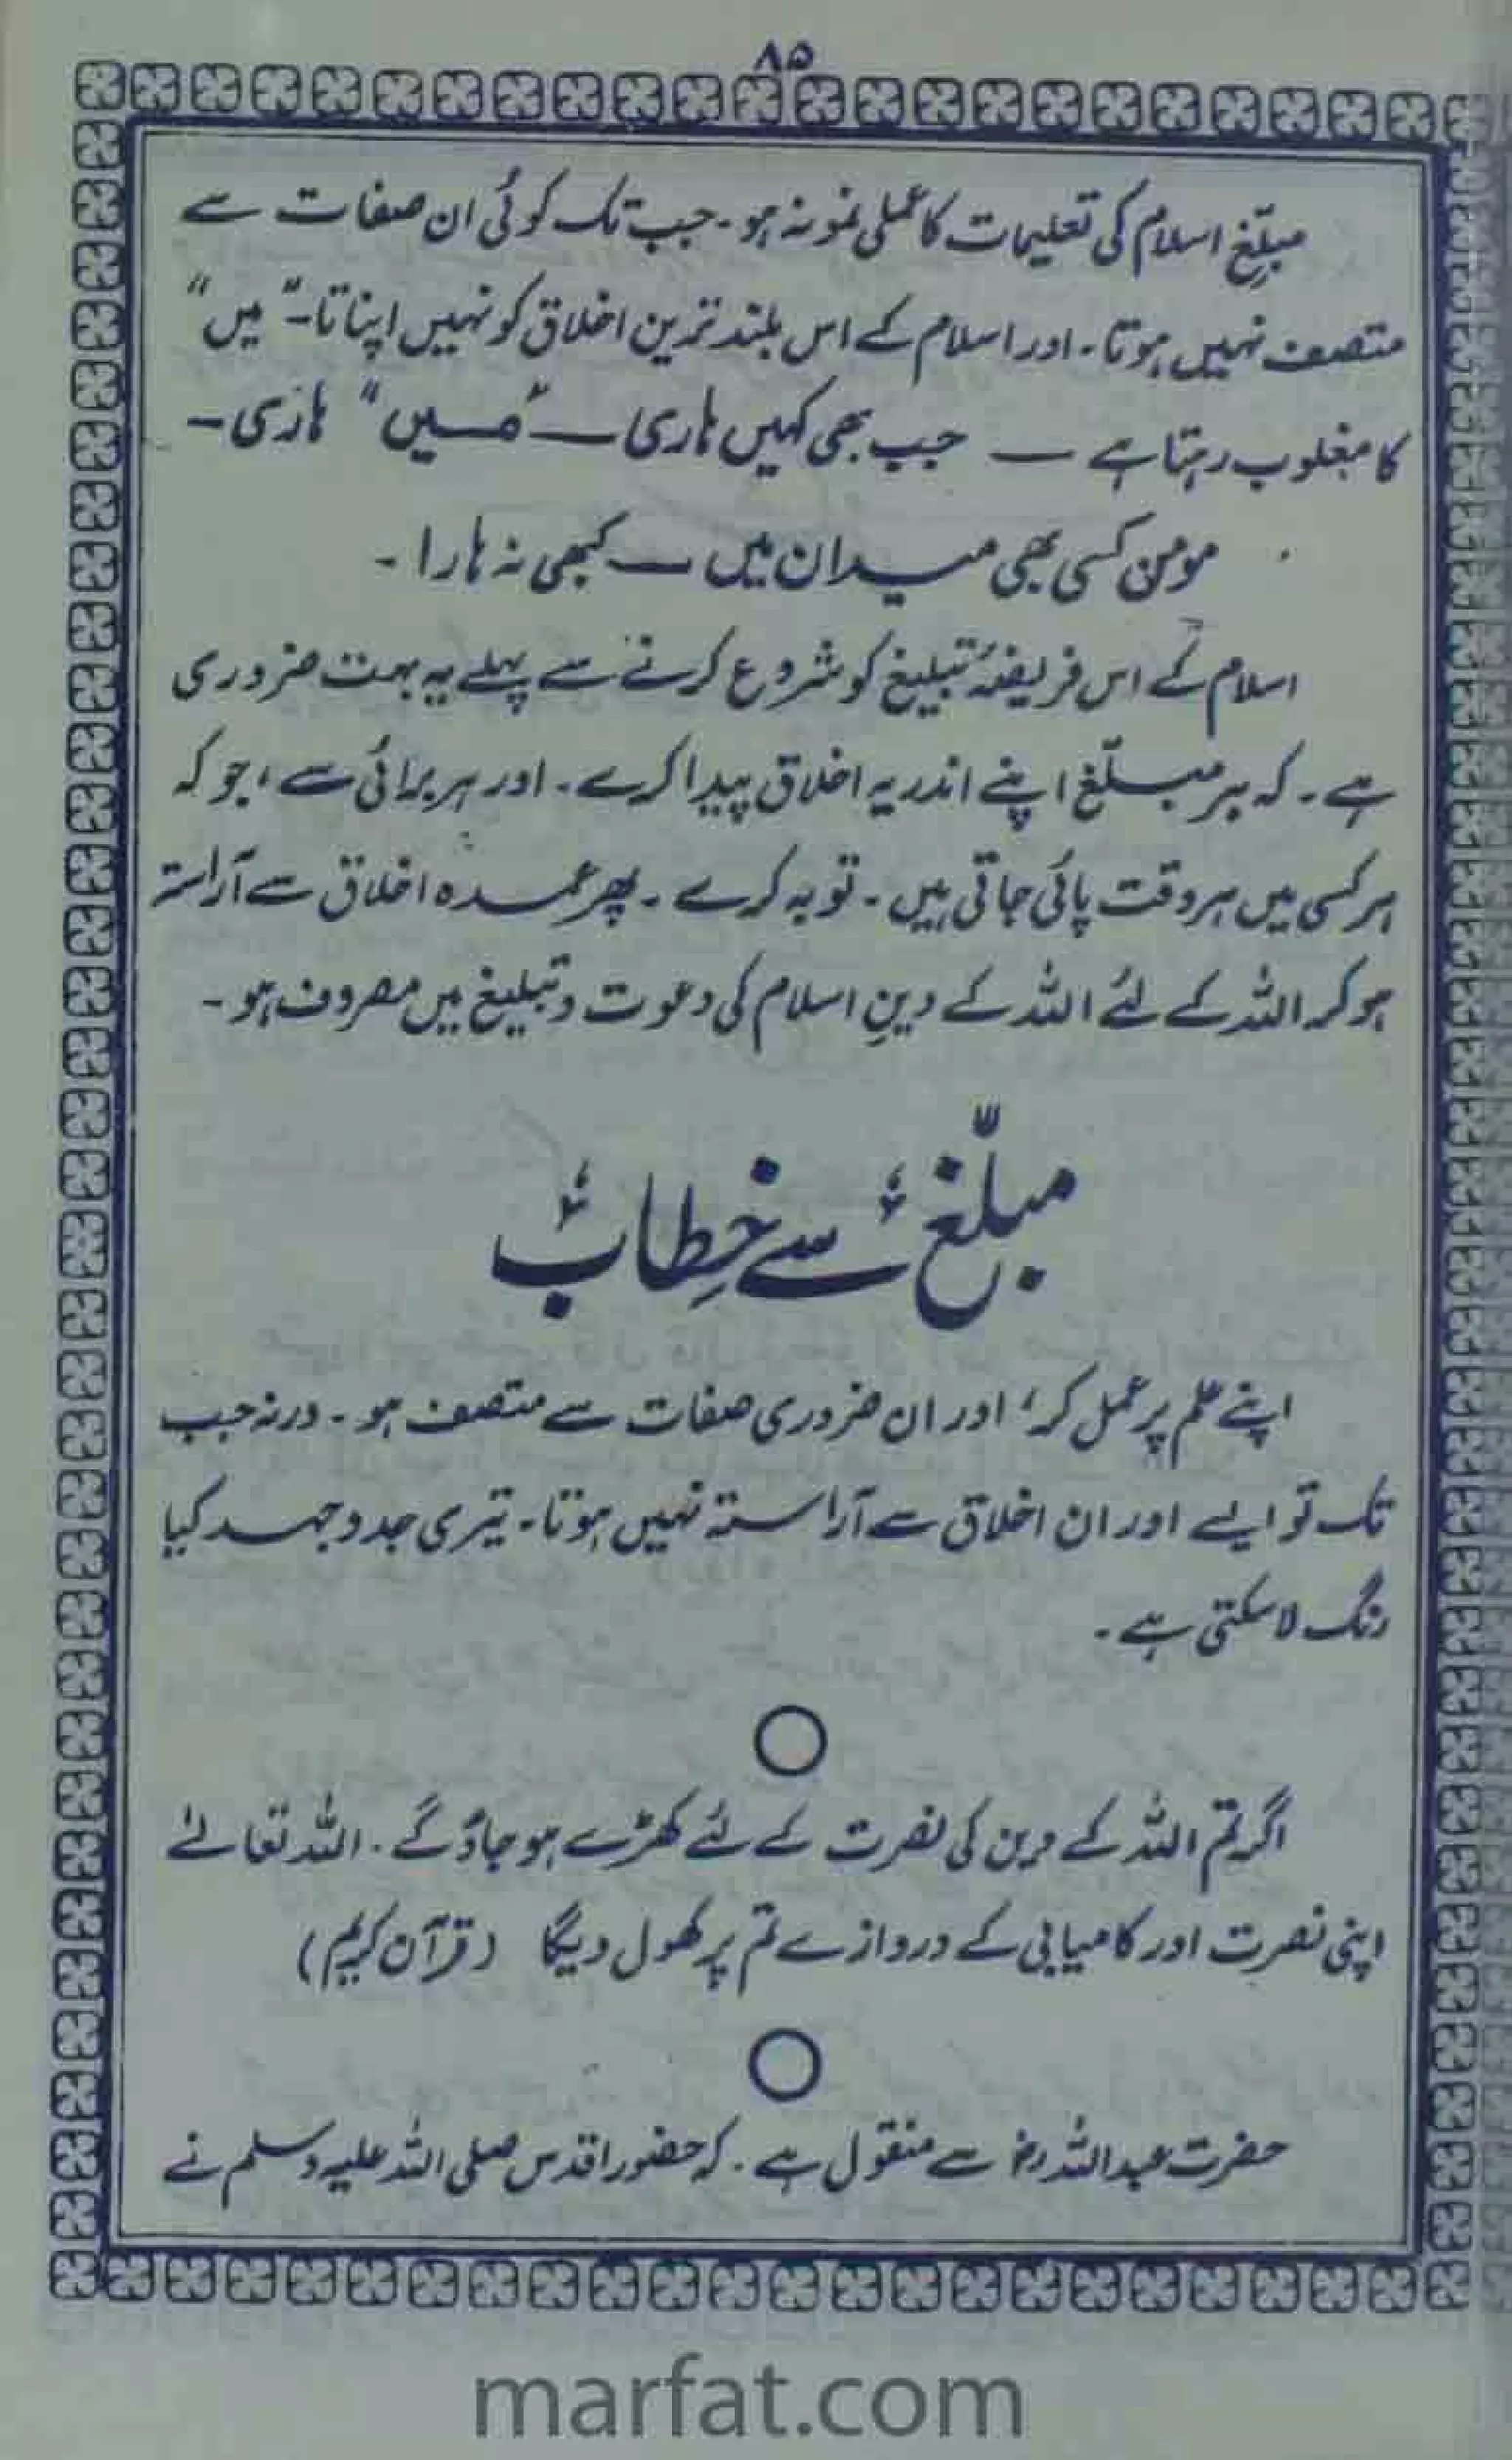 ۸۵
مبلّغ اسلام کی تعلیمات کا عملی نمونہ ہو۔ جب تک کوئی ان صفات سے
متصف نہیں ہوتا۔ اور اسلام کے اس بلند ترین اخلاق کو نہیں اپناتا۔ "میں"
کا مغلوب رہتا ہے — جب بھی کہیں ہاری — "میں" ہاری۔
مومن کسی بھی میدان میں — کبھی نہ ہارا۔
اسلام کے اس فریضۂ تبلیغ کو شروع کرنے سے پہلے یہ بہت ضروری
ہے۔ کہ ہر مبلّغ اپنے اندر یہ اخلاق پیدا کرے۔ اور ہر برائی سے، جو کہ
ہر کسی میں ہر وقت پائی جاتی ہیں۔ توبہ کرے۔ پھر عمدہ اخلاق سے آراستہ
ہو کر اللہ کے لئے اللہ کے دینِ اسلام کی دعوت و تبلیغ میں مصروف ہو۔
مبلّغ سے خطاب
اپنے علم پر عمل کر، اور ان ضروری صفات سے متصف ہو۔ ورنہ جب
تک تو ایسے اور ان اخلاق سے آراستہ نہیں ہوتا۔ تیری جدوجہد کیا
رنگ لا سکتی ہے۔
اگر تم اللہ کے دین کی نصرت کے لئے کھڑے ہو جاؤ گے۔ اللہ تعالےٰ
اپنی نصرت اور کامیابی کے دروازے تم پر کھول دیگا (قرآن کریم)
حضرت عبداللہ رضؓ سے منقول ہے۔ کہ حضور اقدس صلی اللہ علیہ وسلم نے
marfat.com